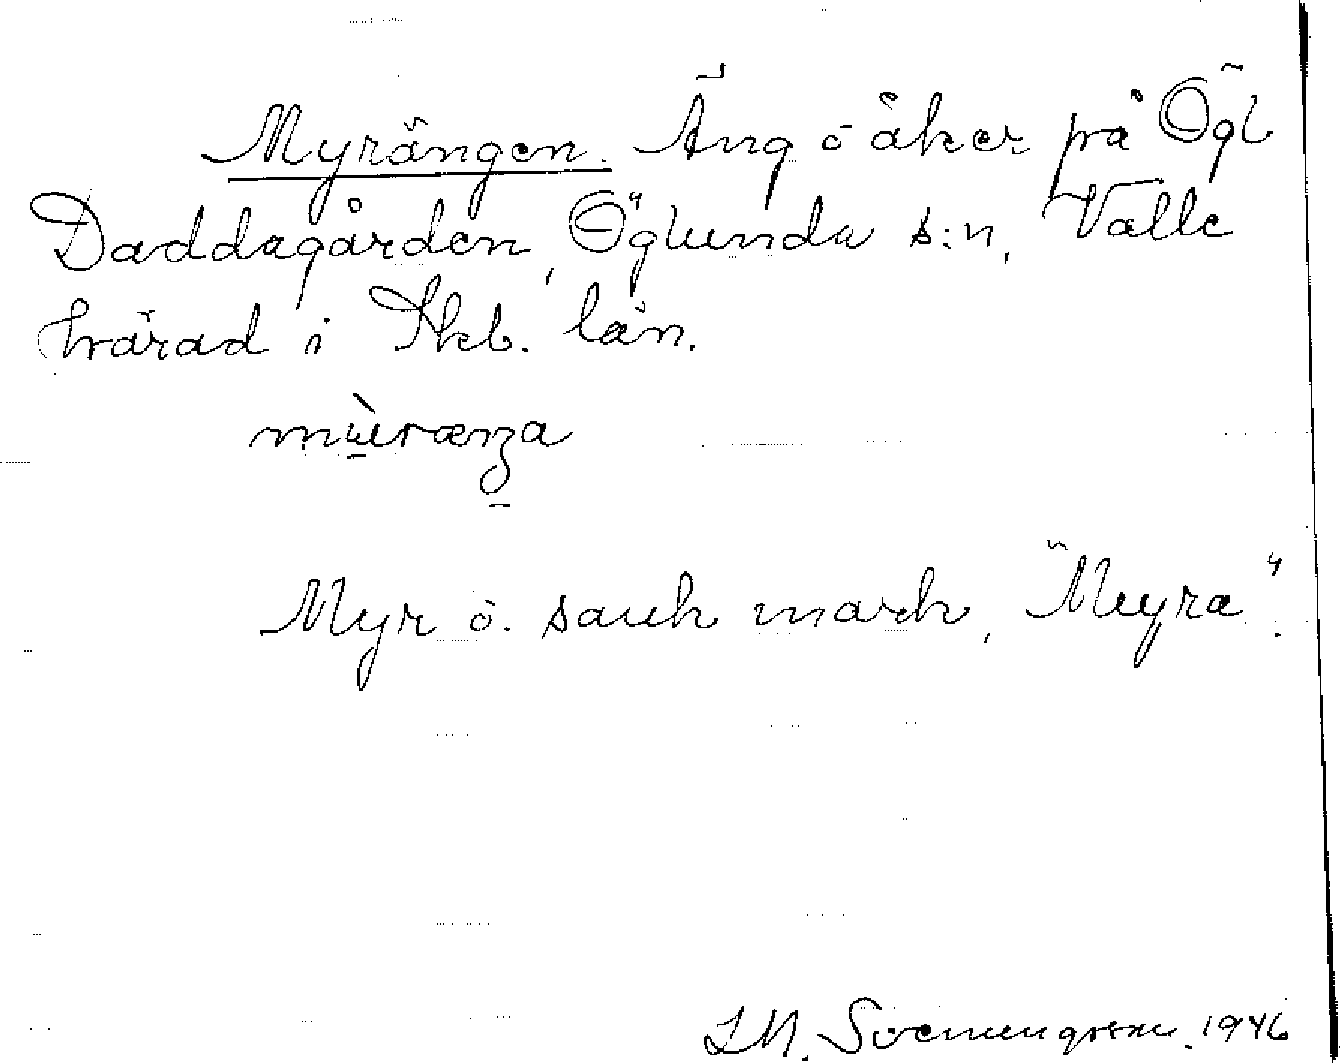 Myrängen. Äng o åker på Ögl
Daddagården, Öglunda s:n, Valle
härad i Skb. län.
mỳræŋa
Myr o. sank mark, "Myra".
1946